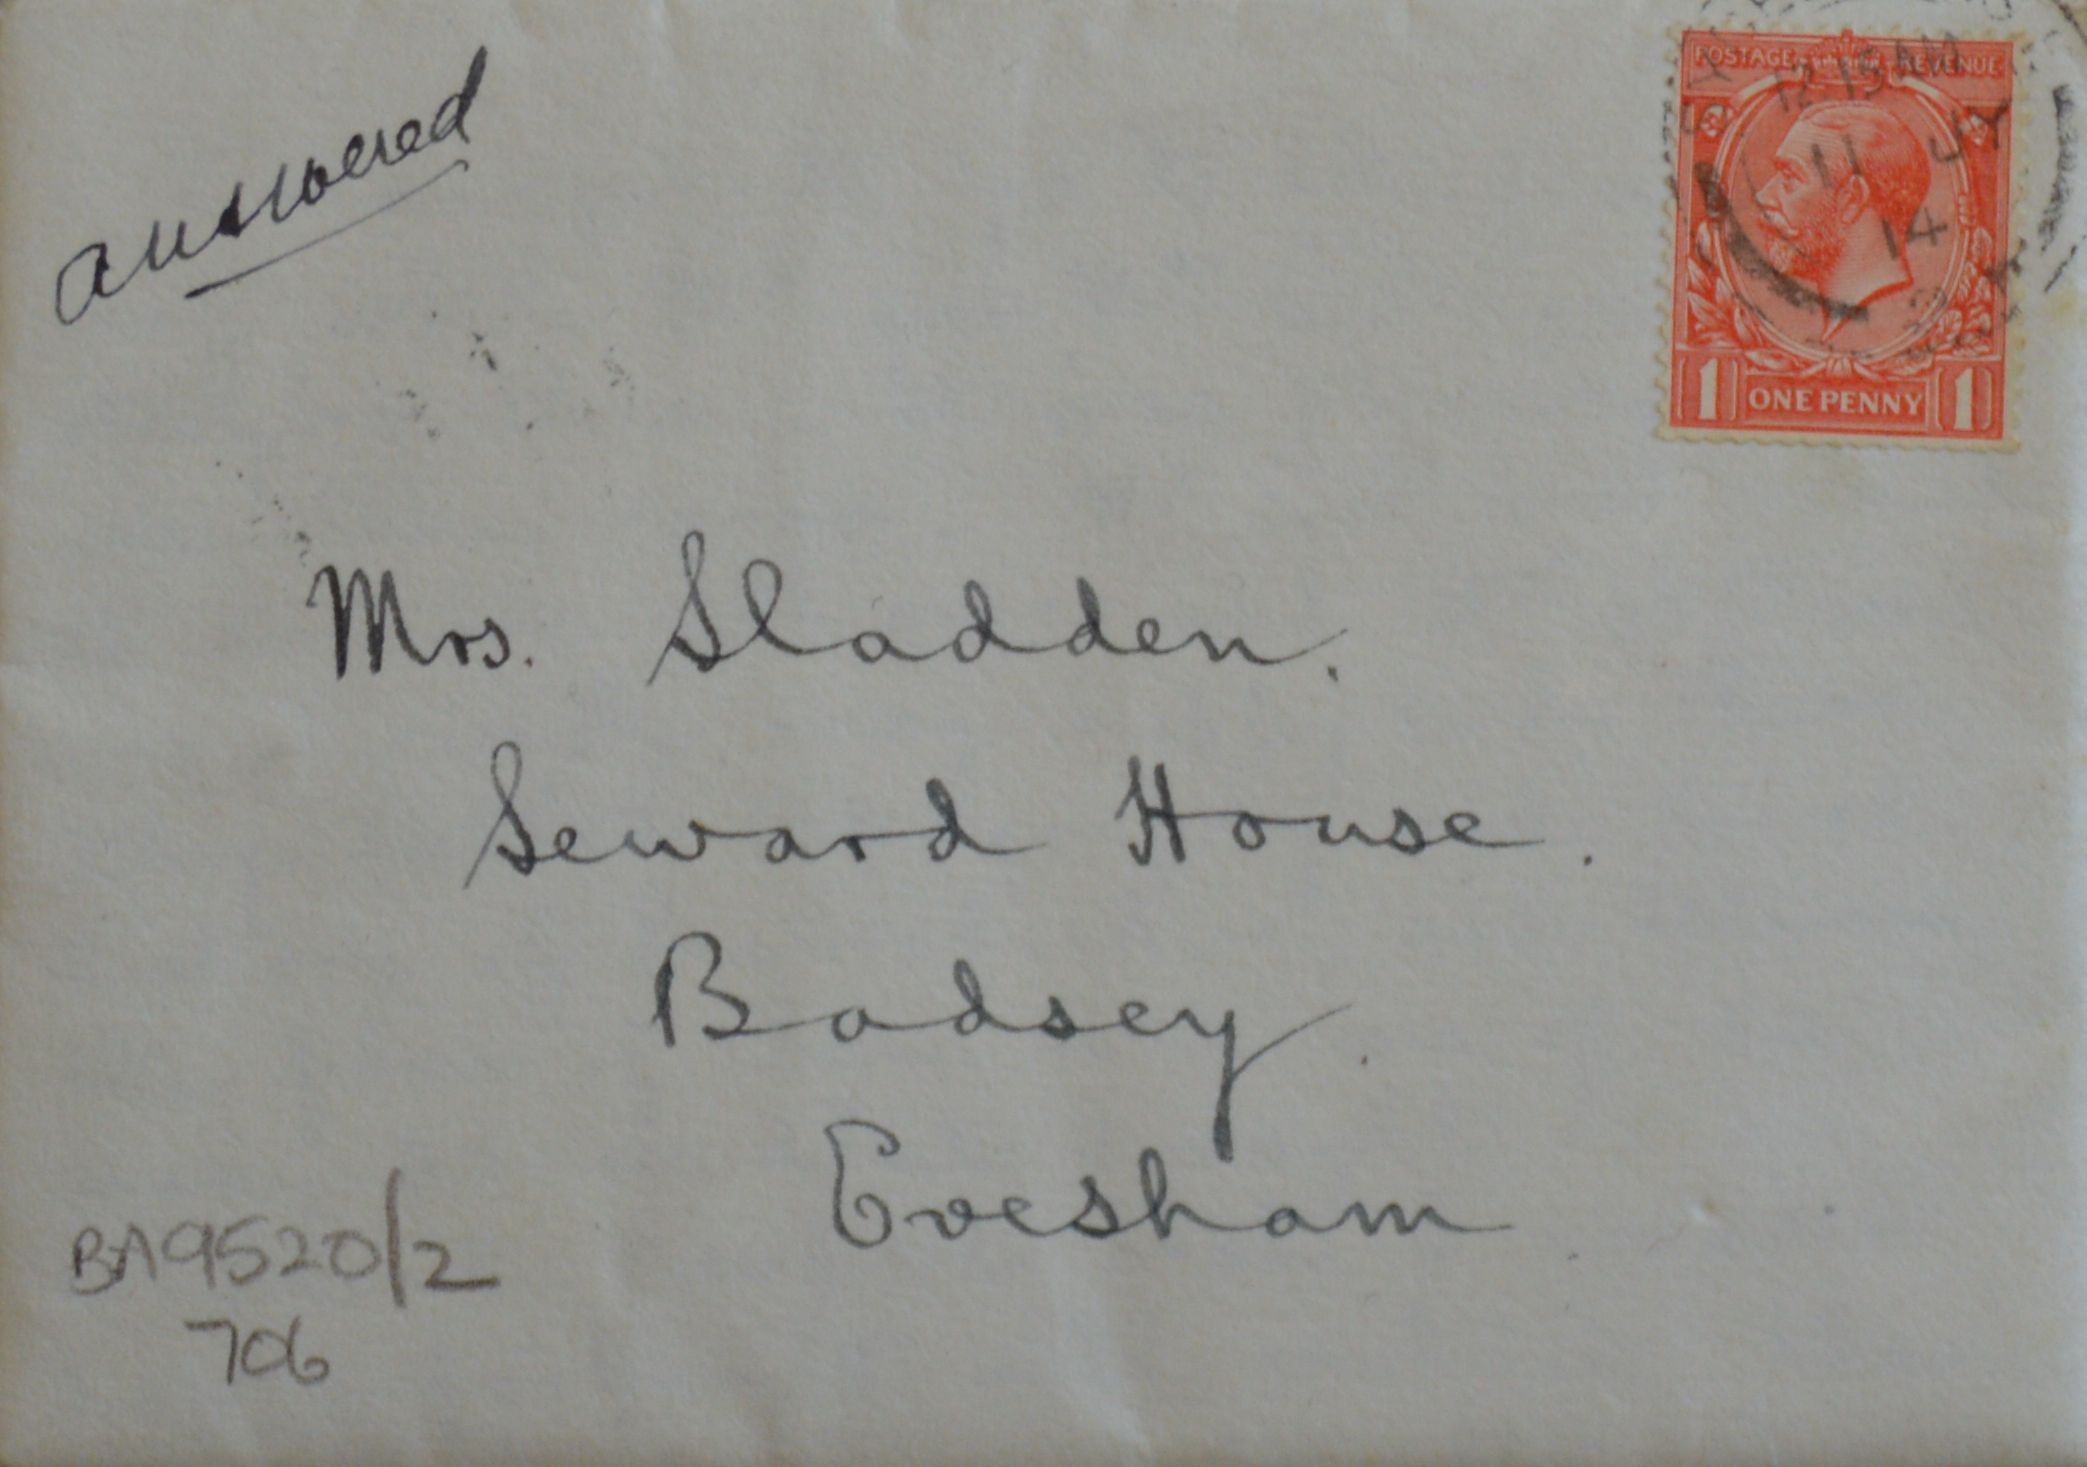 answered
POSTAGE REVENUE
12 15 AM
11 JY
14
1 ONE PENNY 1
Mrs. Sladden.
Seward House.
Badsey.
Evesham
BA9520/2
706